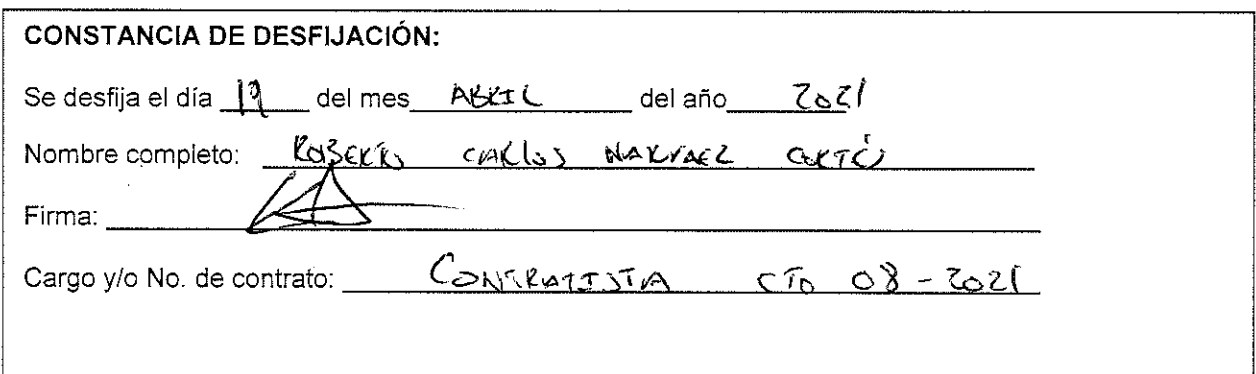 CONSTANCIA DE DESFIJACIÓN:
Se desfija el día 19 del mes ABRIL del año 2021
Nombre completo: ROBERTO CARLOS NARVAEZ CORTÉS
Firma:
Cargo y/o No. de contrato: CONTRATISTA CTO 08-2021